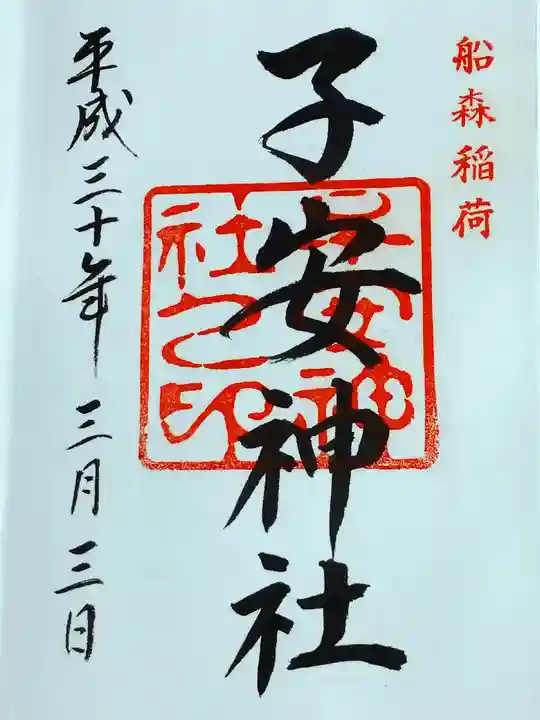 船森稲荷
子安神社
子安神
社之印
平成三十年三月三日